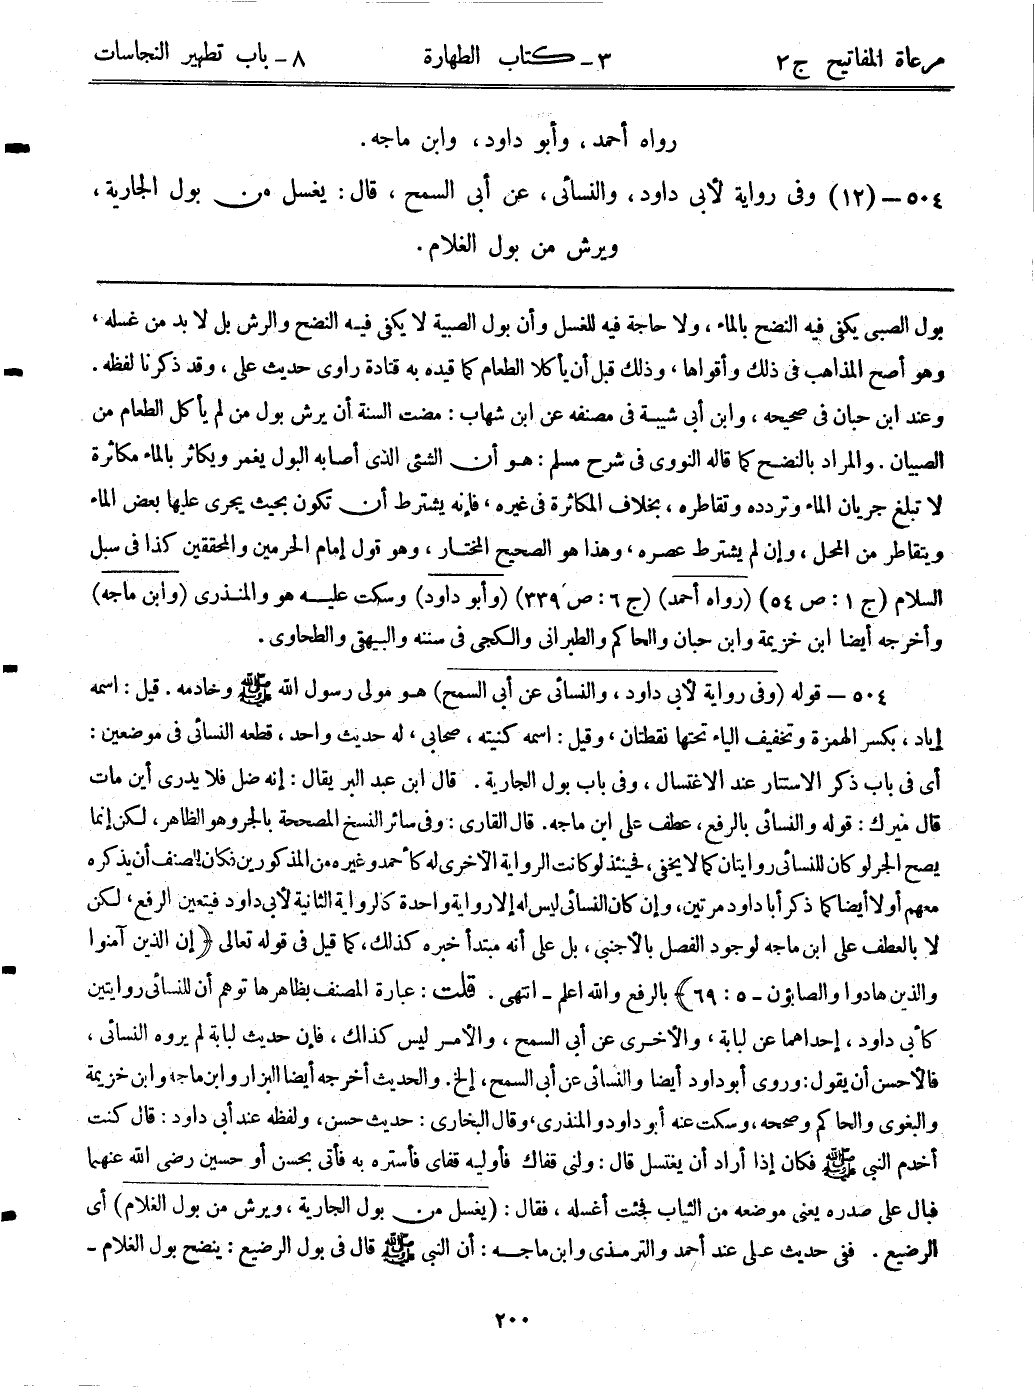 مرعاة المفاتيح ج ٢ ٣ - كتاب الطهارة ٨ - باب تطهير النجاسات
رواه أحمد، وأبو داود، وابن ماجه.
٥٠٤ – (١٢) وفى رواية لأبى داود، والنسائى، عن أبى السمح، قال: يغسل من بول الجارية،
ويرش من بول الغلام.
بول الصبى يكفى فيه النضح بالماء، ولا حاجة فيه للغسل وأن بول الصبية لا يكفى فيه النضح والرش بل لا بد من غسله،
وهو أصح المذاهب فى ذلك وأقواها، وذلك قبل أن يأكلا الطعام كما قيده به قتادة راوى حديث على، وقد ذكرنا لفظه.
وعند ابن حبان فى صحيحه، وابن أبى شيبة فى مصنفه عن ابن شهاب: مضت السنة أن يرش بول من لم يأكل الطعام من
الصبيان. والمراد بالنضح كما قاله النووى فى شرح مسلم: هو أن الشئى الذى أصابه البول يغمر ويكاثر بالماء مكاثرة
لا تبلغ جريان الماء وتردده وتقاطره، بخلاف المكاثرة فى غيره، فإنه يشترط أن تكون بحيث يجرى عليها بعض الماء
ويتقاطر من المحل، وإن لم يشترط عصره، وهذا هو الصحيح المختار، وهو قول إمام الحرمين والمحققين كذا فى سبل
السلام (ج ١: ص ٥٤) (رواه أحمد) (ج ٦: ص ٣٣٩) (وأبو داود) وسكت عليه هو والمنذرى (وابن ماجه)
وأخرجه أيضا ابن خزيمة وابن حبان والحاكم والطبرانى والكجى فى سننه والبيهقى والطحاوى.
٥٠٤ – قوله (وفى رواية لأبى داود، والنسائى عن أبى السمح) هو مولى رسول الله ﷺ وخادمه. قيل: اسمه
إياد، بكسر الهمزة وتخفيف الياء تحتها نقطتان، وقيل: اسمه كنيته، صحابى، له حديث واحد، قطعه النسائى فى موضعين:
أى فى باب ذكر الاستتار عند الاغتسال، وفى باب بول الجارية. قال ابن عبد البر يقال: إنه ضل فلا يدرى أين مات
قال ميرك: قوله والنسائى بالرفع، عطف على ابن ماجه. قال القارى: وفى سائر النسخ المصححة بالجر وهو الظاهر، لكن إنما
يصح الجر لو كان للنسائى روايتان كما لا يخفى، فحينئذ لو كانت الرواية الاخرى له كأحمد وغيره من المذكورين فكان المصنف أن يذكره
معهم أولا أيضا كما ذكر أبا داود مرتين، وإن كان النسائى ليس له إلا رواية واحدة كالرواية الثانية لأبى داود فيتعين الرفع، لكن
لا بالعطف على ابن ماجه لوجود الفصل بالأجنبى، بل على أنه مبتدأ خبره كذلك، كما قيل فى قوله تعالى ﴿إن الذين آمنوا
والذين هادوا والصابؤن - ٥: ٦٩﴾ بالرفع والله اعلم - انتهى. قلت: عبارة المصنف بظاهرها توهم أن للنسائى روايتين
كأبى داود، إحداهما عن لبابة، والأخرى عن أبى السمح، والأمر ليس كذلك، فإن حديث لبابة لم يروه النسائى،
فالأحسن أن يقول: وروى أبو داود أيضا والنسائى عن أبى السمح، إلخ. والحديث أخرجه أيضا البزار وابن ماجه وابن خزيمة
والبغوى والحاكم وصححه، وسكت عنه أبو داود والمنذرى، وقال البخارى: حديث حسن، ولفظه عند أبى داود: قال كنت
أخدم النبى ﷺ فكان إذا أراد أن يغتسل قال: ولنى قفاك فأوليه قفاى فأستره به فأتى بحسن أو حسين رضى الله عنهما
فبال على صدره يعنى موضعه من الثياب فجئت أغسله، فقال: (يغسل من بول الجارية، ويرش من بول الغلام) أى
الرضيع. ففى حديث على عند أحمد والترمذى وابن ماجه: أن النبى ﷺ قال فى بول الرضيع: ينضح بول الغلام -
٢٠٠